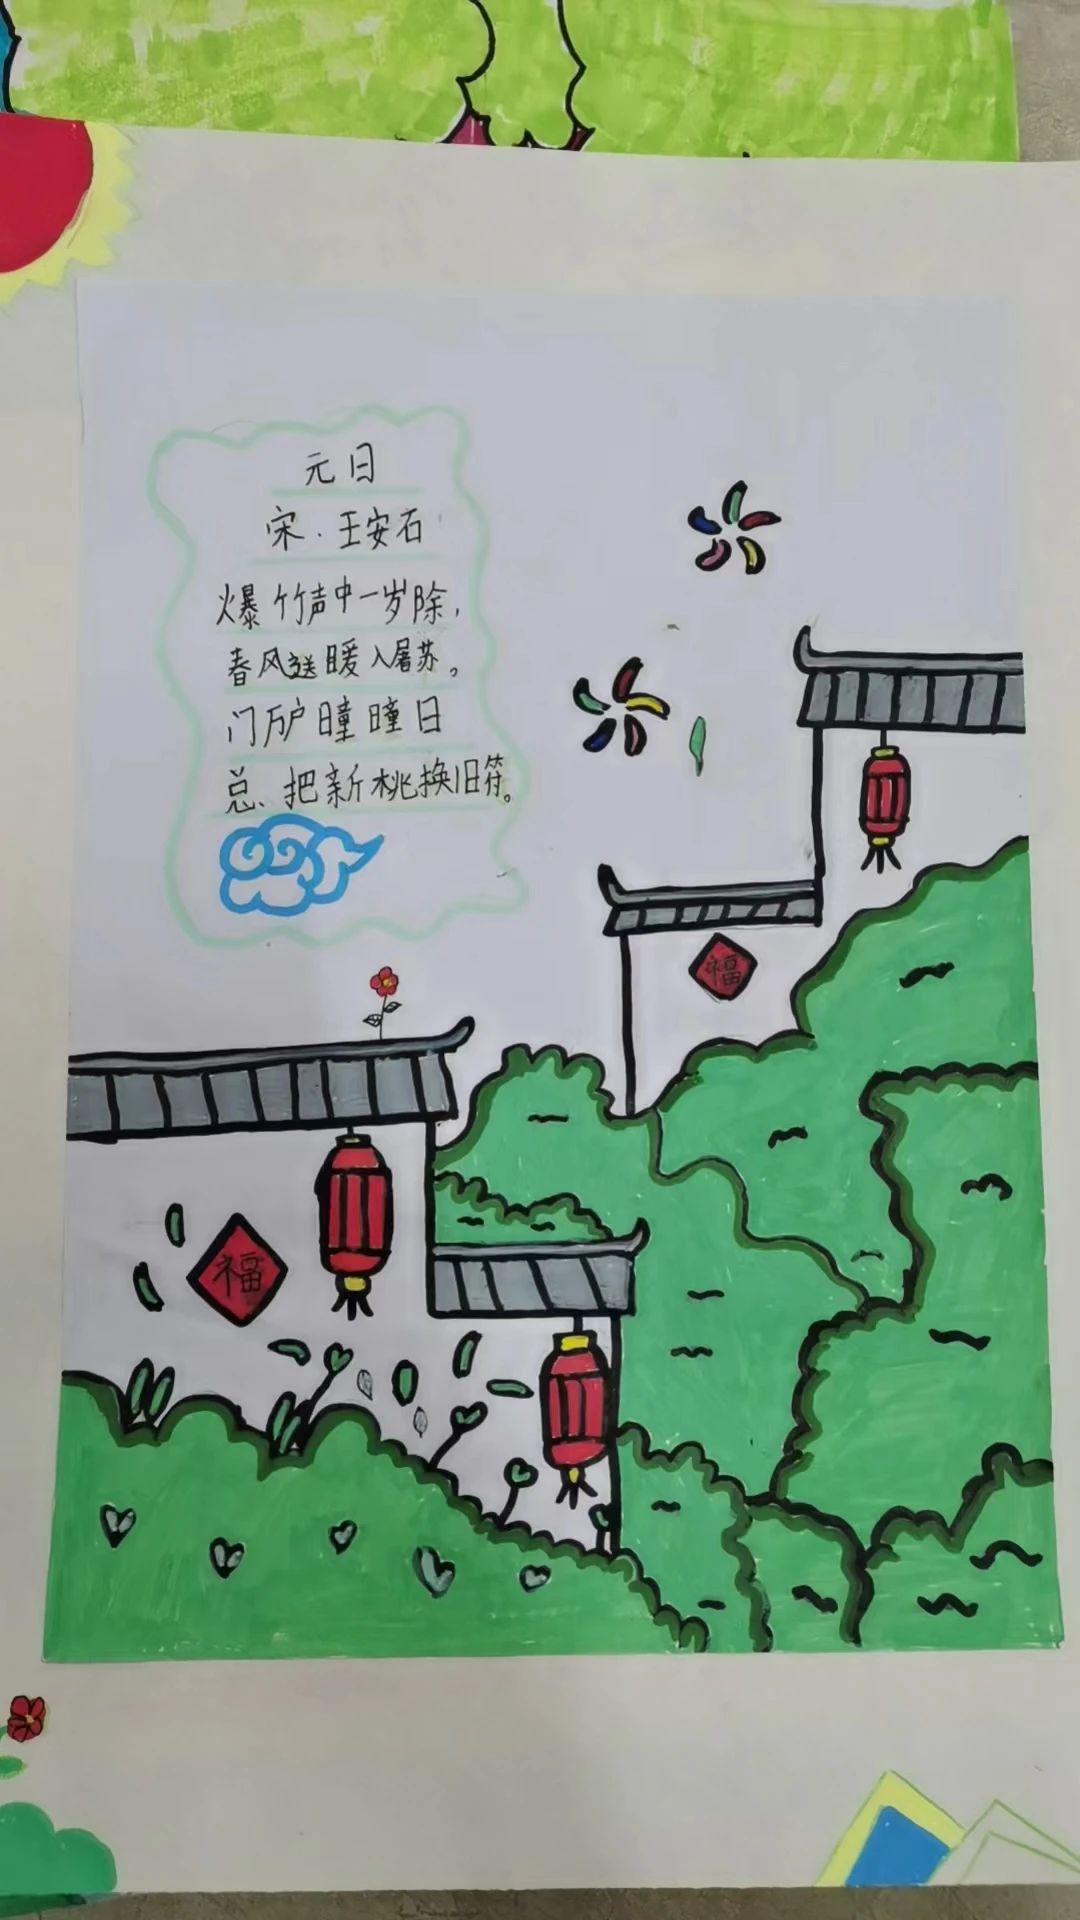 元日
宋·王安石
爆竹声中一岁除,
春风送暖入屠苏。
门万户曈曈日
总、把新桃换旧符。
福
福